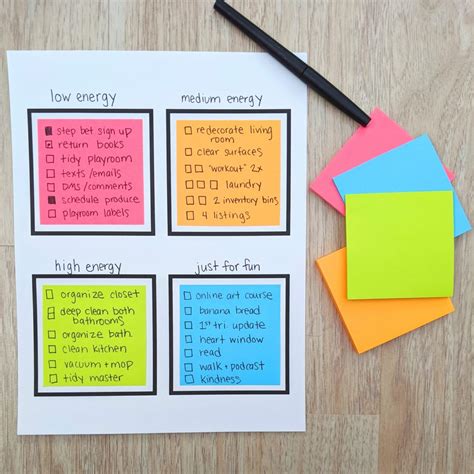 low energy
step bet sign up
return books
tidy playroom
texts/emails
DMs/comments
schedule produce
playroom labels
medium energy
redecorate living
room
clear surfaces
"workout" 2x
laundry
2 inventory bins
4 listings
high energy
organize closet
deep clean both
bathrooms
organize bath.
clean kitchen
vacuum + mop
tidy master
just for fun
online art course
banana bread
1st tri. update
heart window
read
walk + podcast
kindness